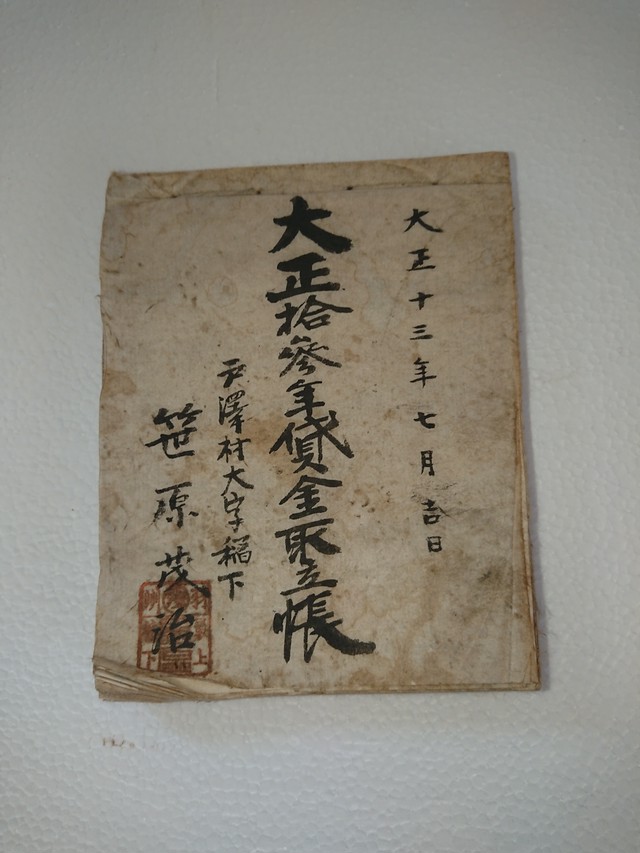 大正十三年七月吉日
大正拾参年貸金取立帳
戸澤村大字稲下
笹原茂治